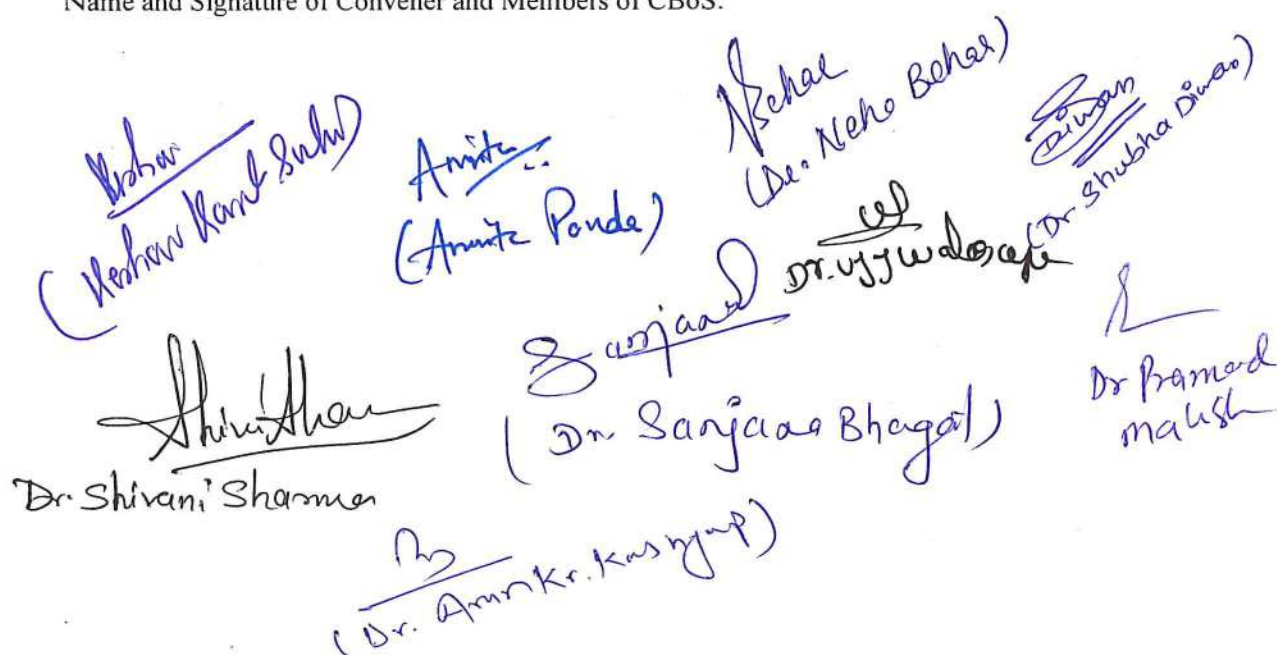 Name and Signature of Convener and Members of CBoS:
Keshav
(Keshav Kant Sahu)
Amrita
(Amrita Pande)
NBehar
(Dr. Neha Behar)
Diwan
(Dr Shubha Diwan)
Dr. Ujjwala
Sanjana
(Dr. Sanjana Bhagat)
Dr Pramod
Mahish
Dr. Shivani Sharma
(Dr. Arun Kr. Kashyap)